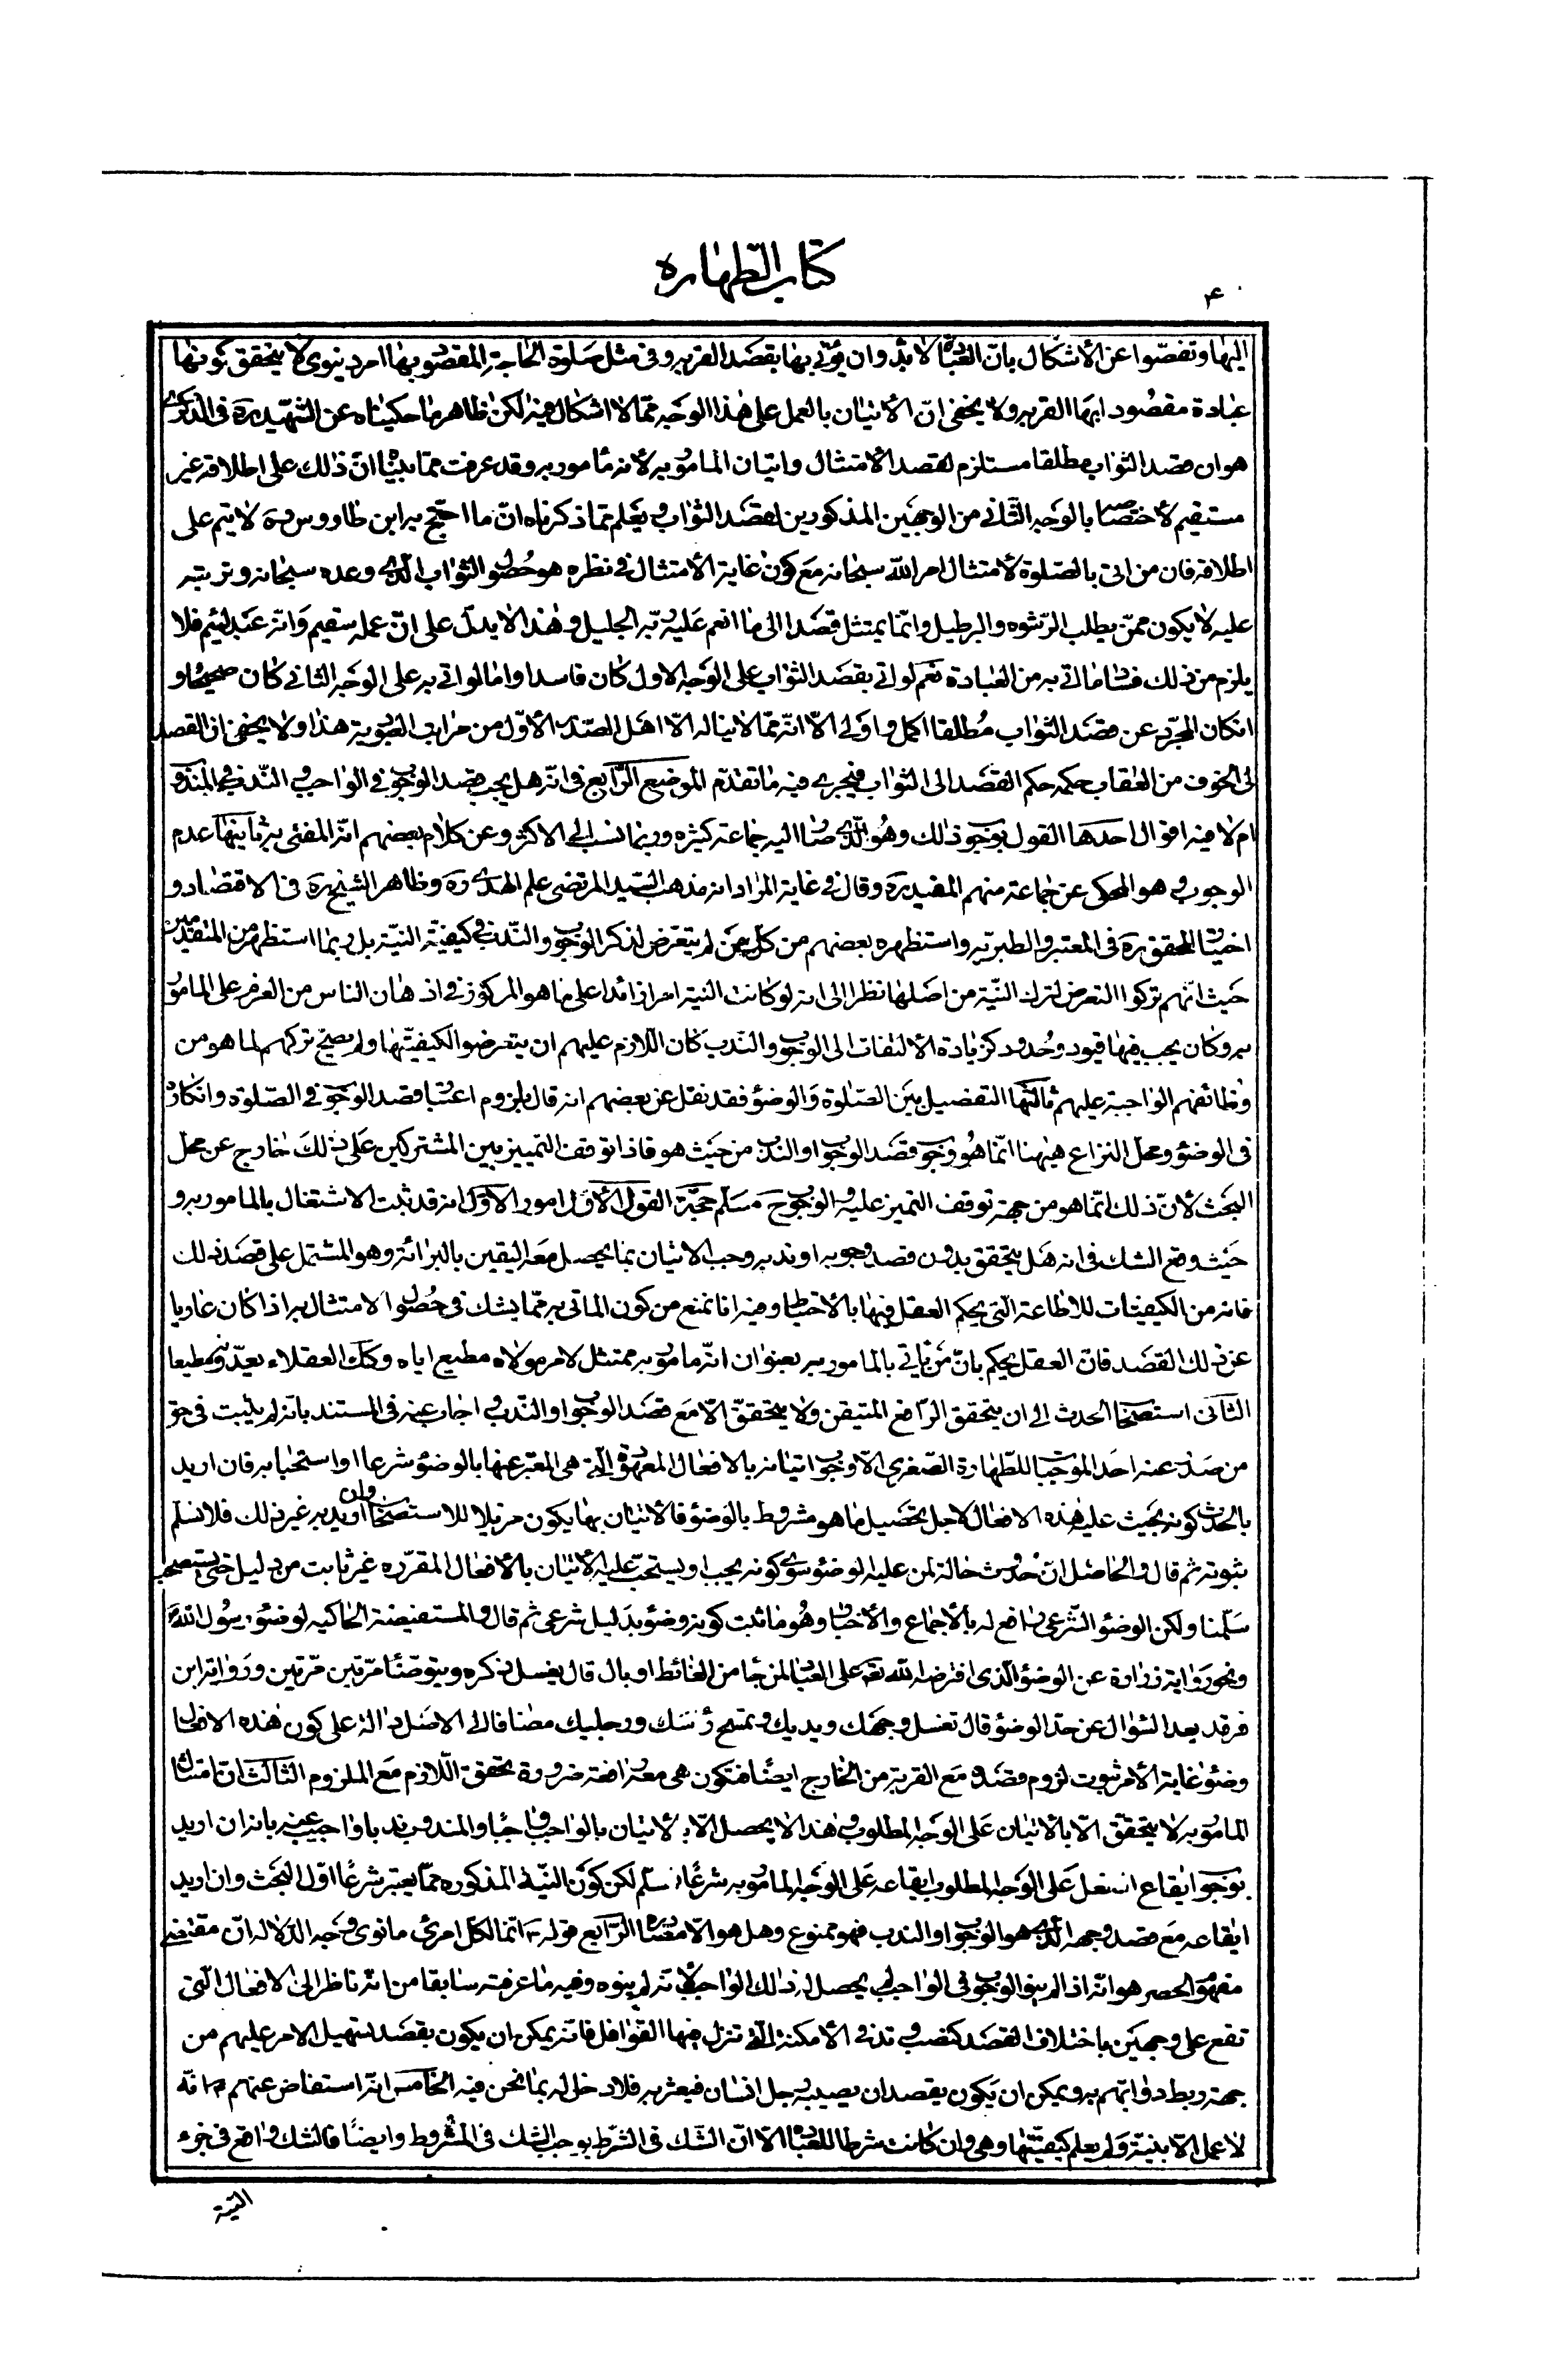 كتاب الطهارة
۴
اليها وتفصّوا عن الأشكال بانّ العبادة لا بدّ وان يؤتى بها بقصد القربة وفي مثل صلوة الحاجة المقصود بها امر دينوى لا يتحقق كونها
عبادة مقصودا بها القربة ولا يخفى انّ الأتيان بالعمل على هذا الوجه ممّا لا اشكال فيه لكن ظاهر ما حكيناه عن الشّهيد ره في الذكرى
هو ان قصد الثواب مطلقا مستلزم لقصد الأمتثال واتيان المامور به لانه مأمور به وقد عرفت ممّا بيّنا انّ ذلك على اطلاقه غير
مستقيم لأختصاصه بالوجه الثّاني من الوجهين المذكورين لقصد الثواب ويعلم ممّا ذكرناه انّ ما احتج به ابن طاووس ره لا يتم على
اطلاقه فان من اتى بالصّلوة لأمتثال امر الله سبحانه مع كون غاية الأمتثال في نظره هو حصول الثواب الّذى وعده سبحانه وتربته
عليه لا يكون ممّن يطلب الرّشوه والبرطيل وانّما يمتثل قصدا الى ما انعم عليه ربّه الجليل وهذا لا يدلّ على انّ عمله سقيم وانّه عبد لئيم فلا
يلزم من ذلك فساد ما اتى به من العبادة نعم لو اتى بقصد الثواب على الوجه الاول كان فاسدا واما لو اتى به على الوجه الثاني كان صحيحا و
انكان المجرّد عن قصد الثواب مطلقا اكمل واولى الّا انّه ممّا لا يناله الّا اهل الصّدر الأوّل من مراتب العبودية هذا ولا يخفى ان القصد
الى الخوف من العقاب حكمه حكم القصد الى الثواب فيجرى فيه ما تقدّم الموضع الرّابع في انّه هل يجب قصد الوجوب في الواجب والنّدب في المندوب
ام لا فيه اقوال احدها القول بوجوب ذلك وهو الّذى صار اليه جماعة كثيره وربما نسب الى الاكثر وعن كلام بعضهم انّه المفتى به ثانيها عدم
الوجوب وهو المحكى عن جماعة منهم المفيد ره وقال في غاية المراد انه مذهب السّيد المرتضى علم الهدى ره وظاهر الشيخ ره في الاقتصاد و
اختيار المحقق ره في المعتبر والطبريّه واستظهره بعضهم من كلّ من لم يتعرّض لذكر الوجوب والنّدب في كيفيّة النيّة بل ربما استظهر من المتقدّمين
حيث انّهم تركوا التعرض لترك النيّة من اصلها نظرا الى انه لو كانت النية امرا زائدا على ما هو المركوز في اذهان الناس من العزم على المامور
به وكان يجب فيها قيود وحدود كزيادة الألتفات الى الوجوب والندب كان اللازم عليهم ان يتعرضوا لكيفيّتها ولم يصحّ تركهم لما هو من
وظائفهم الواجبة عليهم ثالثها التفصيل بين الصّلوة والوضوء فقد نقل عن بعضهم انه قال بلزوم اعتبار قصد الوجوب في الصّلوة وانكاره
في الوضوء ومحل النزاع هيهنا انّما هو وجوب قصد الوجوب او الندب من حيث هو فاذا توقف التمييز بين المشتركين على ذلك خارج عن محل
البحث لأنّ ذلك انّما هو من جهة توقف التميز عليه والوجوب ح مسلم حجّة القول الأوّل امور الأوّل انه قد ثبت الاشتغال بالمامور به و
حيث وقع الشك في انه هل يتحقق بدون قصد وجوبه او ندبه وجب الاتيان بما يحصل معه اليقين بالبرائة وهو المشتمل على قصد ذلك
فانه من الكيفيّات للاطاعة الّتي يحكم العقل فيها بالأحتياط وفيه انا نمنع من كون الماتى به ممّا يشك في حصول الامتثال به اذا كان عاريا
عن ذلك القصد فانّ العقل يحكم بانّ من يأتى بالمامور به بعنوان انّه مامور به ممتثل لامر مولاه مطيع اياه وكك العقلاء يعدّونه مطيعا
الثّاني استصحاب الحدث الى ان يتحقق الرّافع المتيقن ولا يتحققّ الّا مع قصد الوجوب او النّدب واجاب عنه في المستند بانّه لم يثبت في حق
من صدر عنه احد الموجبات للطّهارة الصّغرى الّا وجوب اتيانه بالافعال المعهودة الّتي هي المعبّر عنها بالوضوء شرعا او استحبابه فان اريد
بالحدث كونه بحيث عليه هذه الافعال لاجل تحصيل ما هو مشروط بالوضوء فالأتيان بها يكون مزيلا للاستصحاب وان اريد به غير ذلك فلا نسلّم
ثبوته ثم قال والحاصل انّ حدوث حالة لمن عليه الوضوء سوى كونه يجب او يستحبّ عليه الأتيان بالأفعال المقرّره غير ثابت من دليل حتى يستصحب
سلّمنا ولكن الوضوء الشّرعى رافع له بالأجماع والأخبار وهو ما ثبت كونه وضوء بدليل شرعى ثم قال والمستفيضة الحاكيه لوضوء رسول الله
ونحو رواية زرارة عن الوضوء الّذى افترضه الله تعه على العباد لمن جاء من الغائط او بال قال يغسل ذكره ويتوضّأ مرّتين مرّتين ورواية ابن
فرقد بعد السّؤال عن حدّ الوضوء قال تغسل وجهك ويديك وتمسح رأسك ورجليك مضافا الى الاصل دالة على كون هذه الافعال
وضوء غاية الأمر ثبوت لزوم قصده مع القربة من الخارج ايضا فتكون هي معه رافعة ضرورة تحقق اللّازم مع الملزوم الثّالث انّ امتثال
المامور به لا يتحقق الّا بالأتيان على الوجه المطلوب وهذا لا يحصل الّا بالأتيان بالواجب واجبا والمندوب ندبا واجيب عنه بانه ان اريد
بوجوب ايقاع الفعل على الوجه المطلوب ايقاعه على الوجه المامور به شرعا فمسلّم لكن كون النيّة المذكوره ممّا يعتبر شرعا اوّل البحث وان اريد
ايقاعه مع قصد وجهه الّذى هو الوجوب او الندب فهو ممنوع وهل هو الّا مصادره الرّابع قوله ع انّما لكلّ امرئ ما نوى وجه الدّلاله انّ مقتضى
مفهوم الحصر هو انّه اذا لم ينو الوجوب في الواجب لم يحصل له ذلك الواجب لأنّه لم ينوه وفيه ما عرفته سابقا من انّه ناظر الى الافعال الّتي
تقع على وجهين باختلاف القصد كنصب وتد في الأمكنة الّتي تنزل فيها القوافل فانّه يمكن ان يكون بقصد تسهيل الامر عليهم من
جهة ربط دوابّهم به ويمكن ان يكون بقصد ان يصيب رجل انسان فيعثر به فلا دخل له بما نحن فيه الخامس انّه استفاض عنهم م انّه
لا عمل الّا بنيّة ولم يعلم كيفيّتها وهي وان كانت شرطا للعبادة الّا انّ الشّك في الشّرط يوجب الشك في المشروط وايضا فالشك واقع في جزء
النيّة